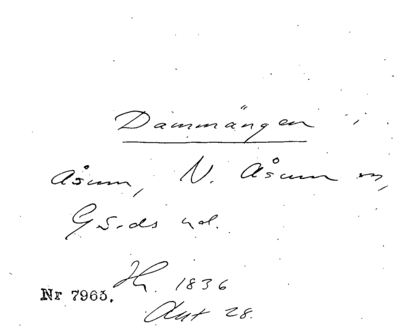 Dammängen
Åsum, N. Åsum sn,
Gärds hd.
Nr 7965. 1836
Akt 28.